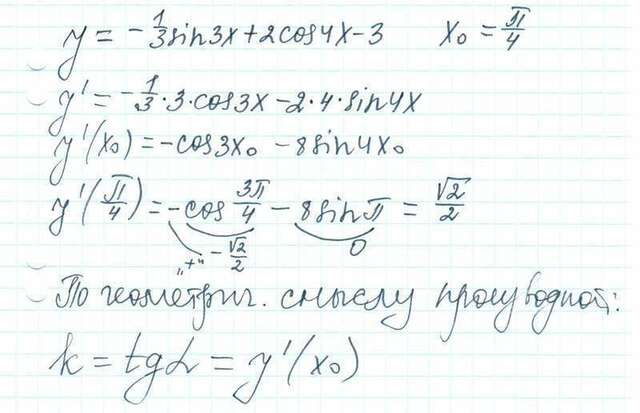 y = -1/3 sin3x + 2cos4x - 3   x₀ = π/4
y' = -1/3 · 3 · cos3x - 2 · 4 · sin4x
y'(x₀) = -cos3x₀ - 8sin4x₀
y'(π/4) = -cos 3π/4 - 8sinπ = √2/2
„+“ -√2/2 0
По геометрич. смыслу производной:
k = tgα = y'(x₀)